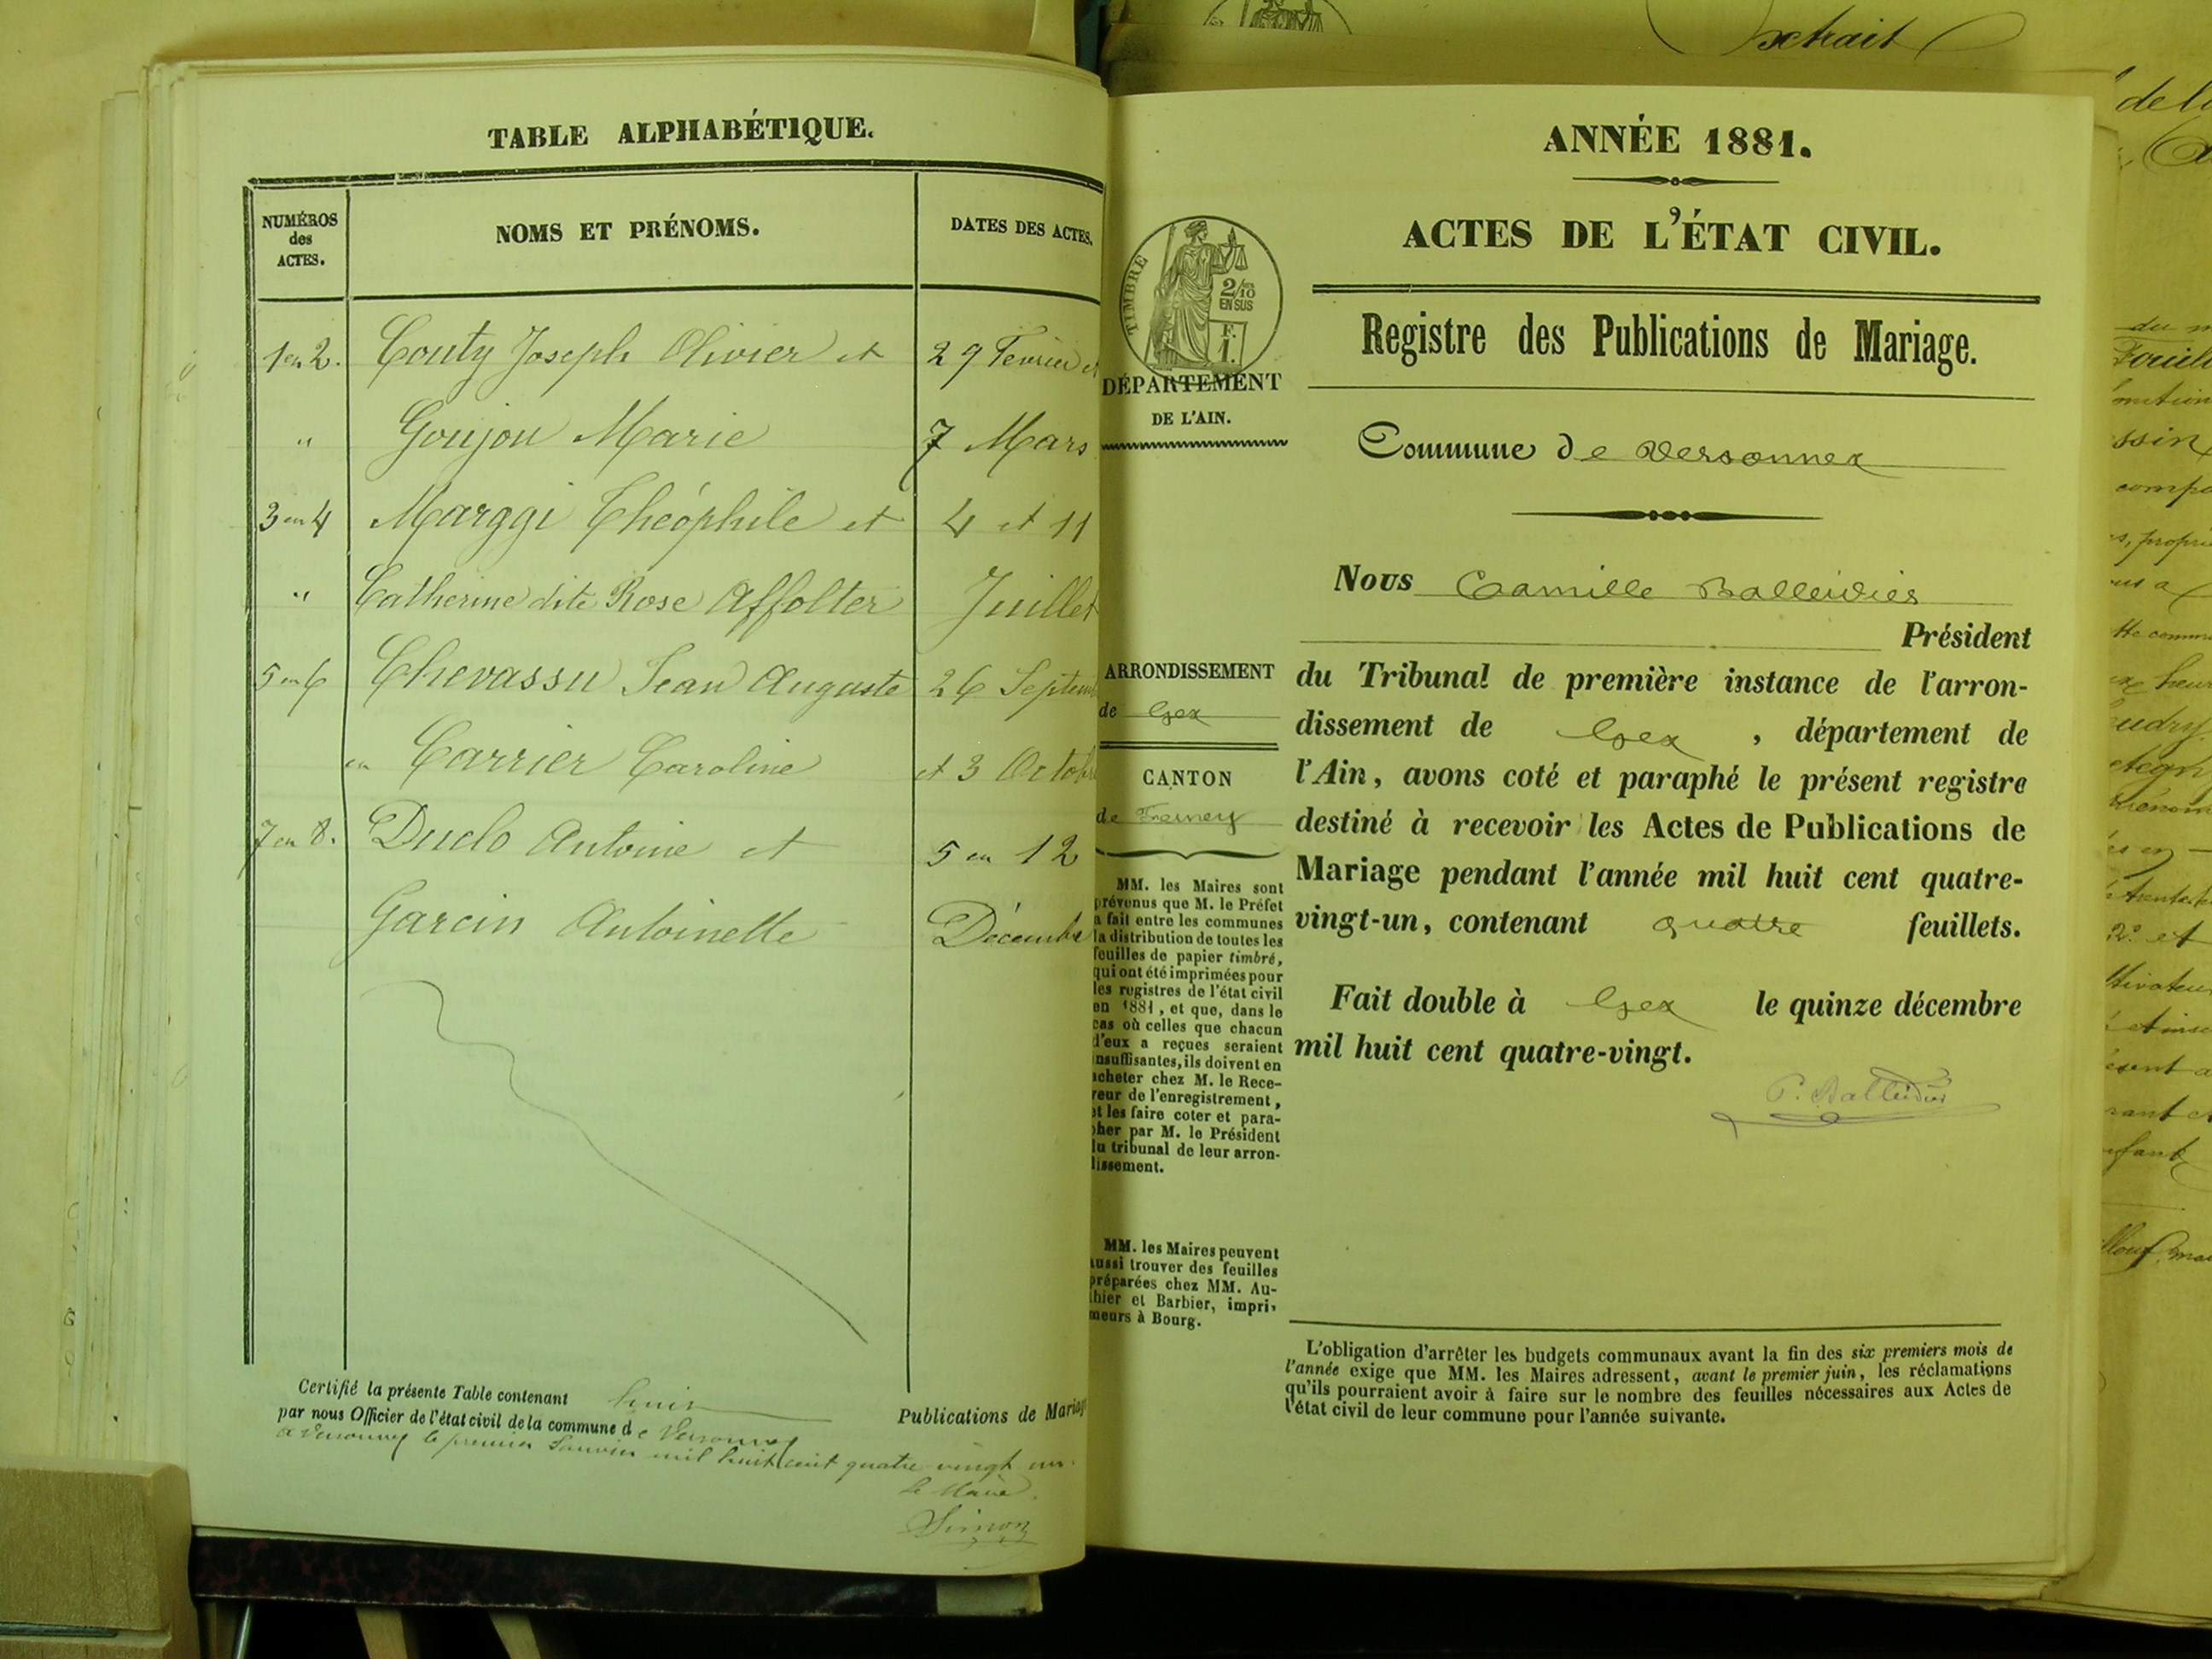 TABLE ALPHABÉTIQUE.
NUMÉROS
des
ACTES.
NOMS ET PRÉNOMS.
DATES DES ACTES.
1 en 2. Couty Joseph Olivier et 29 Février et
" Goujon Marie 7 Mars
3 en 4 Marggi Théophile et 4 et 11
" Catherine dite Rose Affolter Juillet
5 en 6 Chevassu Jean Auguste 26 Septem
en Carrier Caroline et 3 Octobre
7 en 8. Duclo Antoine et 5 en 12
Garcin Antoinette Décembre
Certifié la présente Table contenant huit
par nous Officier de l'état civil de la commune de Versonnex
a Versonnex le premier Janvier mil huit cent quatre vingt un.
Le Maire.
Simon
Publications de Mariag
ANNÉE 1881.
ACTES DE L'ÉTAT CIVIL.
TIMBRE
2/10
EN SUS
F.
1.
DÉPARTEMENT
DE L'AIN.
Registre des Publications de Mariage.
Commune de Versonnex
ARRONDISSEMENT
de Gex
CANTON
de Ferney
MM. les Maires sont
prévenus que M. le Préfet
a fait entre les communes
la distribution de toutes les
feuilles de papier timbré,
qui ont été imprimées pour
les registres de l'état civil
en 1881, et que, dans le
cas où celles que chacun
d'eux a reçues seraient
insuffisantes, ils doivent en
acheter chez M. le Rece-
veur de l'enregistrement,
et les faire coter et para-
pher par M. le Président
du tribunal de leur arron-
dissement.
MM. les Maires peuvent
aussi trouver des feuilles
préparées chez MM. Au-
thier et Barbier, impri-
meurs à Bourg.
Nous Camille Balleidier
Président
du Tribunal de première instance de l'arron-
dissement de Gex, département de
l'Ain, avons coté et paraphé le présent registre
destiné à recevoir les Actes de Publications de
Mariage pendant l'année mil huit cent quatre-
vingt-un, contenant quatre feuillets.
Fait double à Gex le quinze décembre
mil huit cent quatre-vingt.
L'obligation d'arrêter les budgets communaux avant la fin des six premiers mois de
l'année exige que MM. les Maires adressent, avant le premier juin, les réclamations
qu'ils pourraient avoir à faire sur le nombre des feuilles nécessaires aux Actes de
l'état civil de leur commune pour l'année suivante.